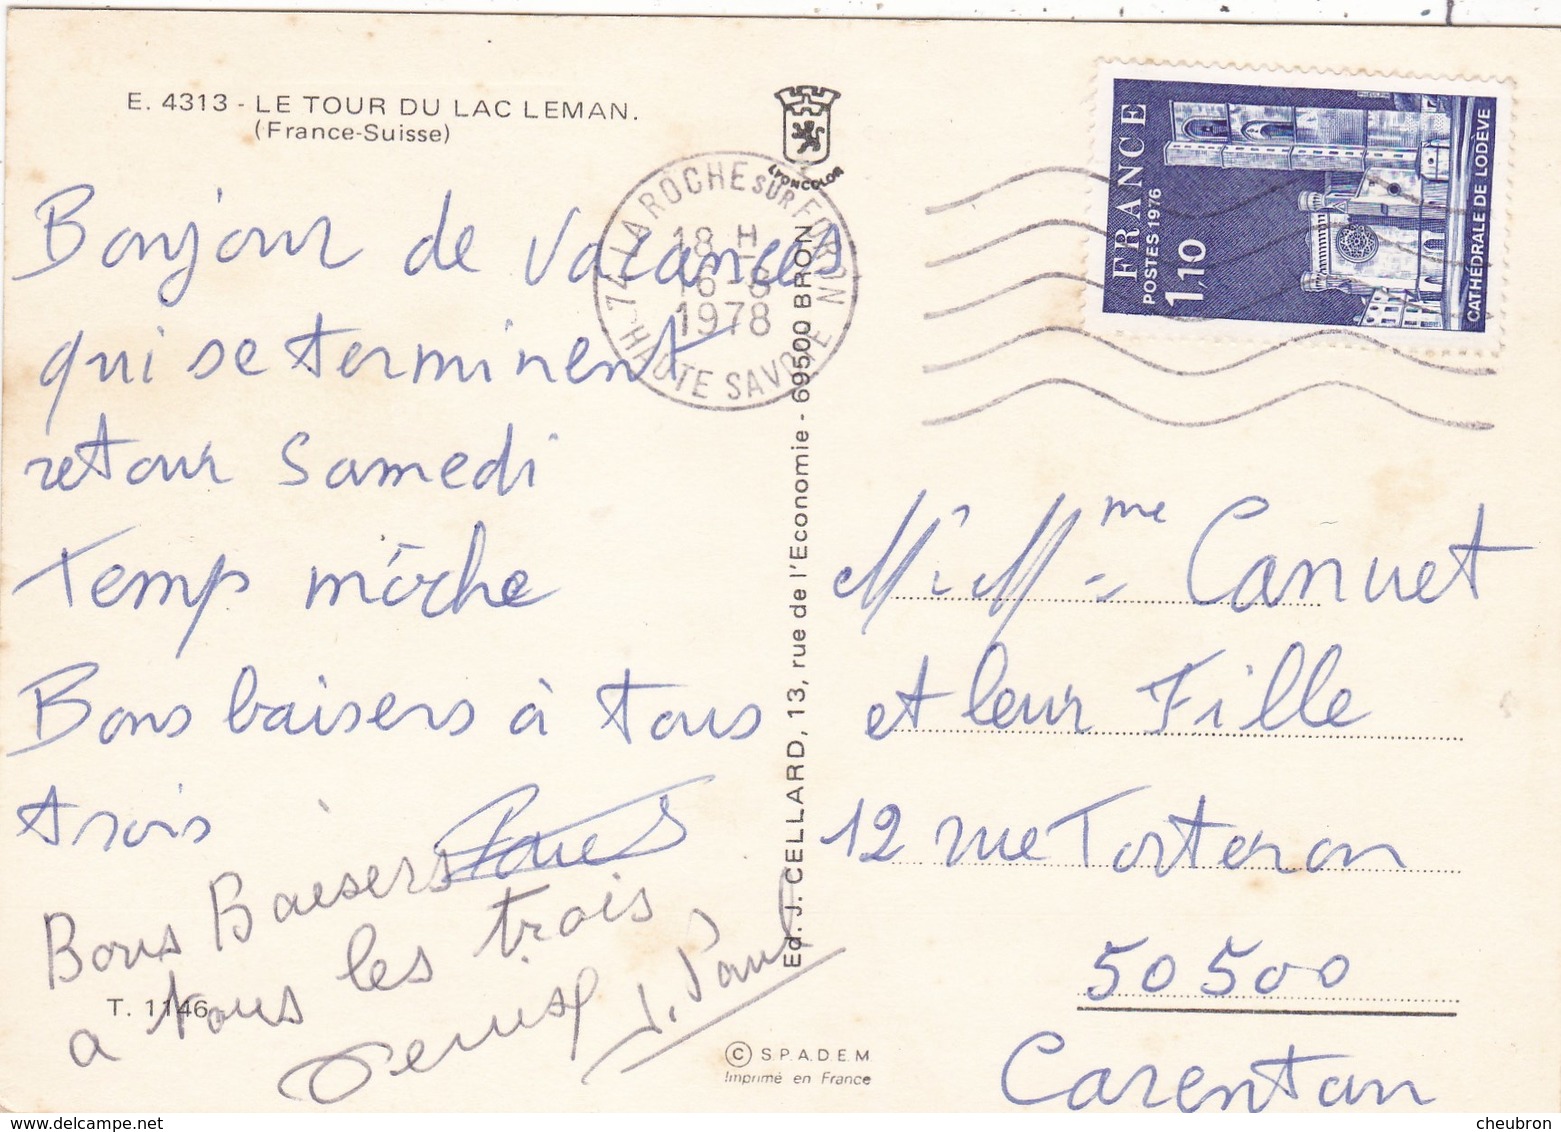 E. 4313 - LE TOUR DU LAC LEMAN.
(France-Suisse)
LYONCOLOR
74 LA ROCHE SUR FORON
18 H
16 - 8
1978
HAUTE SAVOIE
FRANCE
POSTES 1976
1,10
CATHÉDRALE DE LODÈVE
Bonjour de vacances
qui se terminent
retour Samedi
Temp môche
Bons baisers à tous
trois
Bons Baisers
a tous les trois
Denise
J. Paul
Ed. J. CELLARD, 13, rue de l'Economie - 69500 BRON
M. Mme Canuet
et leur Fille
12 rue Torteron
50500
Carentan
T. 1146
© S.P.A.D.E.M
Imprimé en France
cheubron